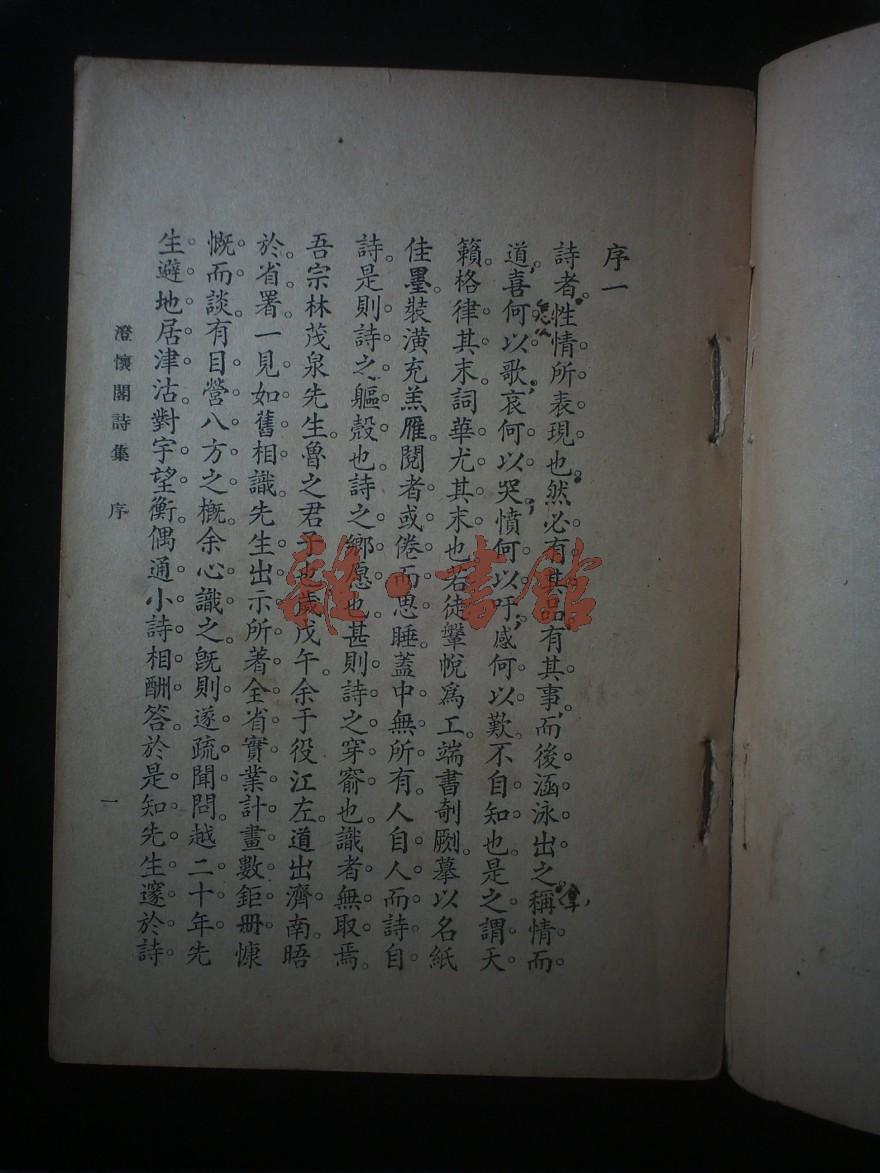 序一
詩者。性情所表現也。然必有其品。有其事。而後涵泳出之。稱情而
道。喜何以歌。哀何以哭。憤何以吁。感何以歎。不自知也。是之謂天
籟。格律其末。詞華尤其末也。若徒鞶帨爲工。端書剞劂。摹以名紙
佳墨。裝潢充羔雁。閱者或倦而思睡。蓋中無所有。人自人而詩自
詩。是則詩之軀殼也。詩之鄉愿也。甚則詩之穿窬也。識者無取焉。
吾宗林茂泉先生。魯之君子也。歲戊午。余于役江左。道出濟南。晤
於省署。一見如舊相識。先生出示所著全省實業計畫數鉅册。慷
慨而談。有目營八方之槪。余心識之。旣則遂疏聞問。越二十年。先
生避地居津沽。對宇望衡。偶通小詩相酬答。於是知先生邃於詩。
澄懷閣詩集 序
一
雜·書館